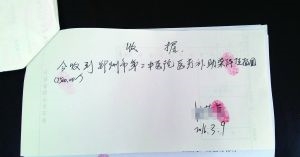 收据
今收到郑州市第二中医院医药补助柒仟伍佰圆
(7500.00元)
2016.3.9